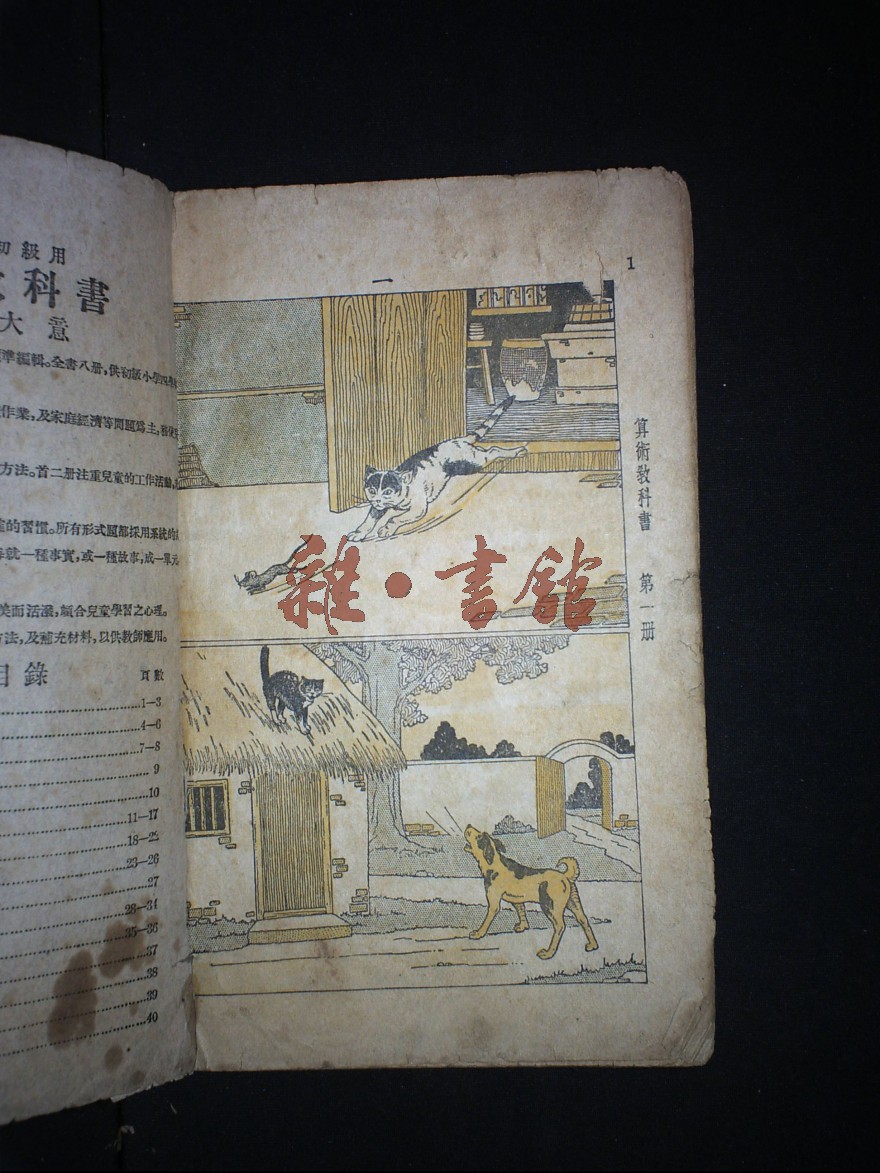 初級用
科書
大意
準編輯。全書八册,供初級小學四學
作業,及家庭經濟等問題爲主,
方法。首二册注重兒童的工作活動,
的習慣。所有形式題都採用系統的
就一種事實,或一種故事,成一單元
美而活潑,頗合兒童學習之心理。
方法,及補充材料,以供教師應用。
目錄 頁數
1—3
4—6
7—8
9
10
11—17
18—22
23—26
27
28—34
35—36
37
38
39
40
1
一
算術教科書 第一册
雜·書館